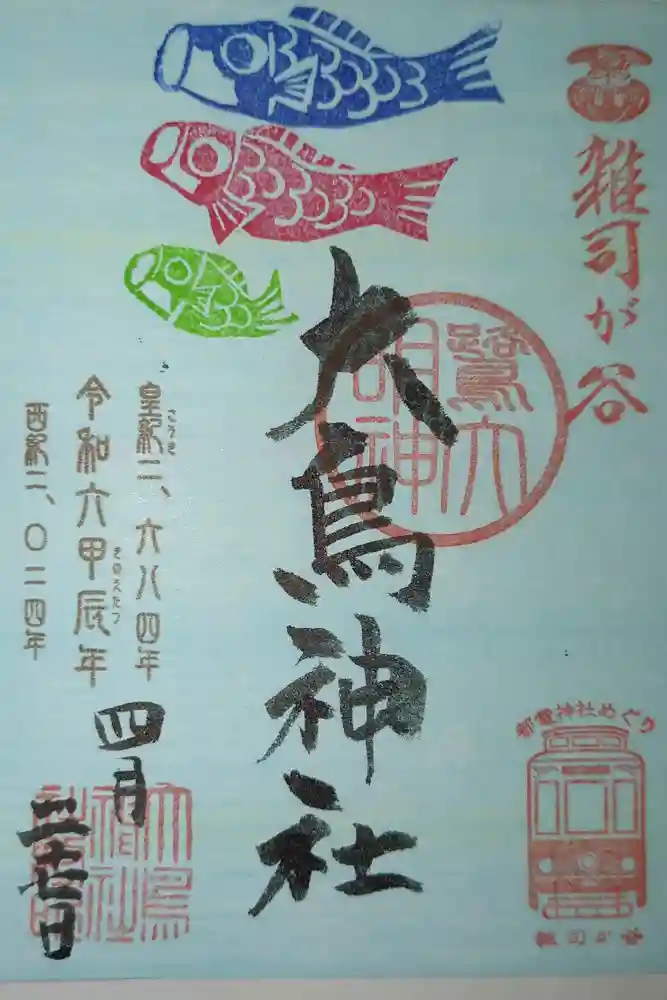 雑司が谷
鷺大
明神
大鳥神社
皇紀二、六八四年
こうき
令和六甲辰年
きのえたつ
西紀二、〇二四年
四月
二十七日
大鳥
神社
都電神社めぐり
雑司が谷